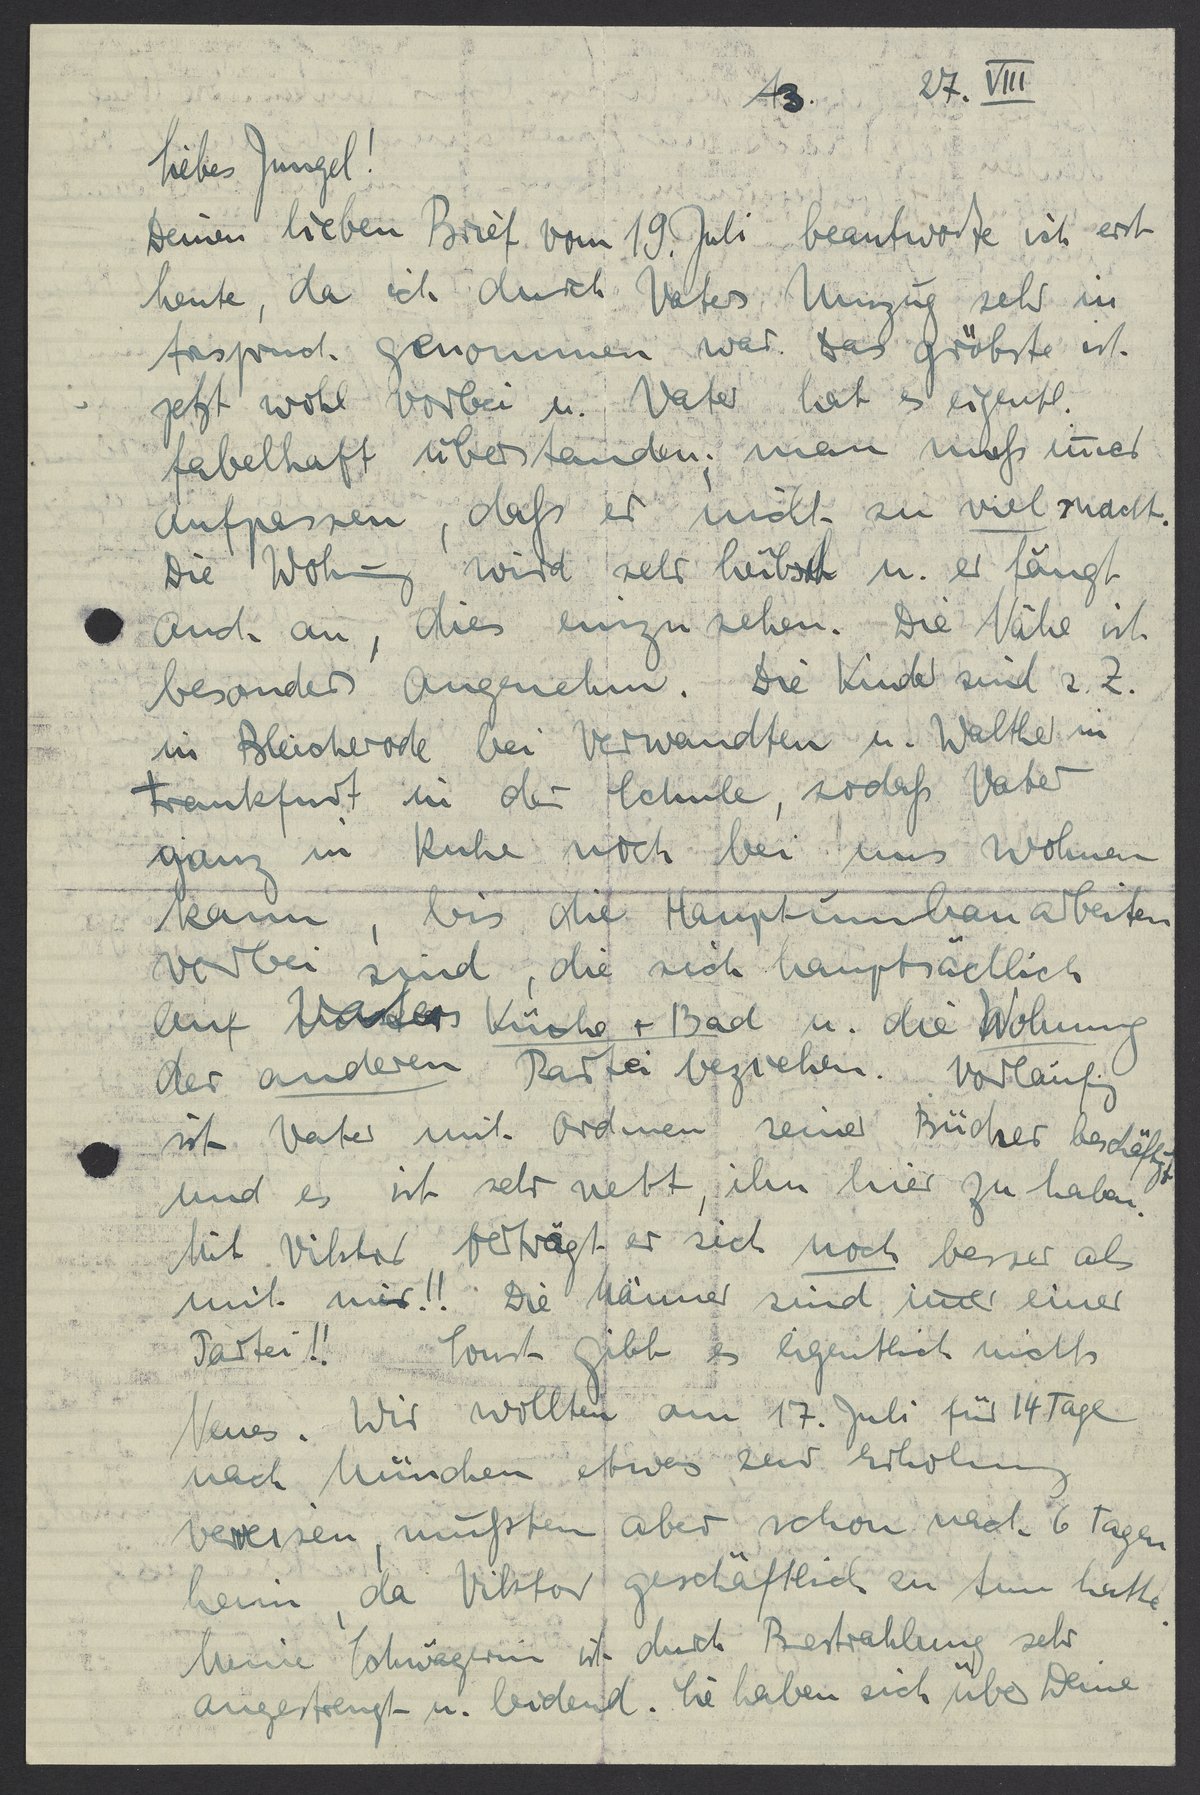 A3. 27. VIII
Liebes Jungel!
Deinen lieben Brief vom 19. Juli beantworte ich erst
heute, da ich durch Vaters Umzug sehr in
Anspruch genommen war. Das gröbste ist
jetzt wohl vorbei u. Vater hat es eigentl.
fabelhaft überstanden; man muß im̅er
aufpassen, daß er nicht zu viel macht.
Die Wohng wird sehr hübsch u. er fängt
auch an, dies einzusehen. Die Nähe ist
besonders angenehm. Die Kinder sind z. Z.
in Bleicherode bei Verwandten u. Walther in
Frankfurt in der Schule, sodaß Vater
ganz in Ruhe noch bei uns wohnen
kann, bis die Hauptumbauarbeiten
vorbei sind, die sich hauptsächlich
auf Vaters Küche + Bad u. die Wohnung
der anderen Partei beziehen. Vorläufig
ist Vater mit Ordnen seiner Bücher beschäftigt
und es ist sehr nett, ihn hier zu haben.
Mit Viktor verträgt er sich noch besser als
mit mir!! Die Männer sind im̅er einer
Partei!! Sonst gibt es eigentlich nichts
Neues. Wir wollten am 17. Juli für 14 Tage
nach München etwas zur Erholung
verreisen, mußten aber schon nach 6 Tagen
heim, da Viktor geschäftlich zu tun hatte.
Meine Schwägerin ist durch Bestrahlung sehr
angestrengt u. leidend. Sie haben sich über Deine